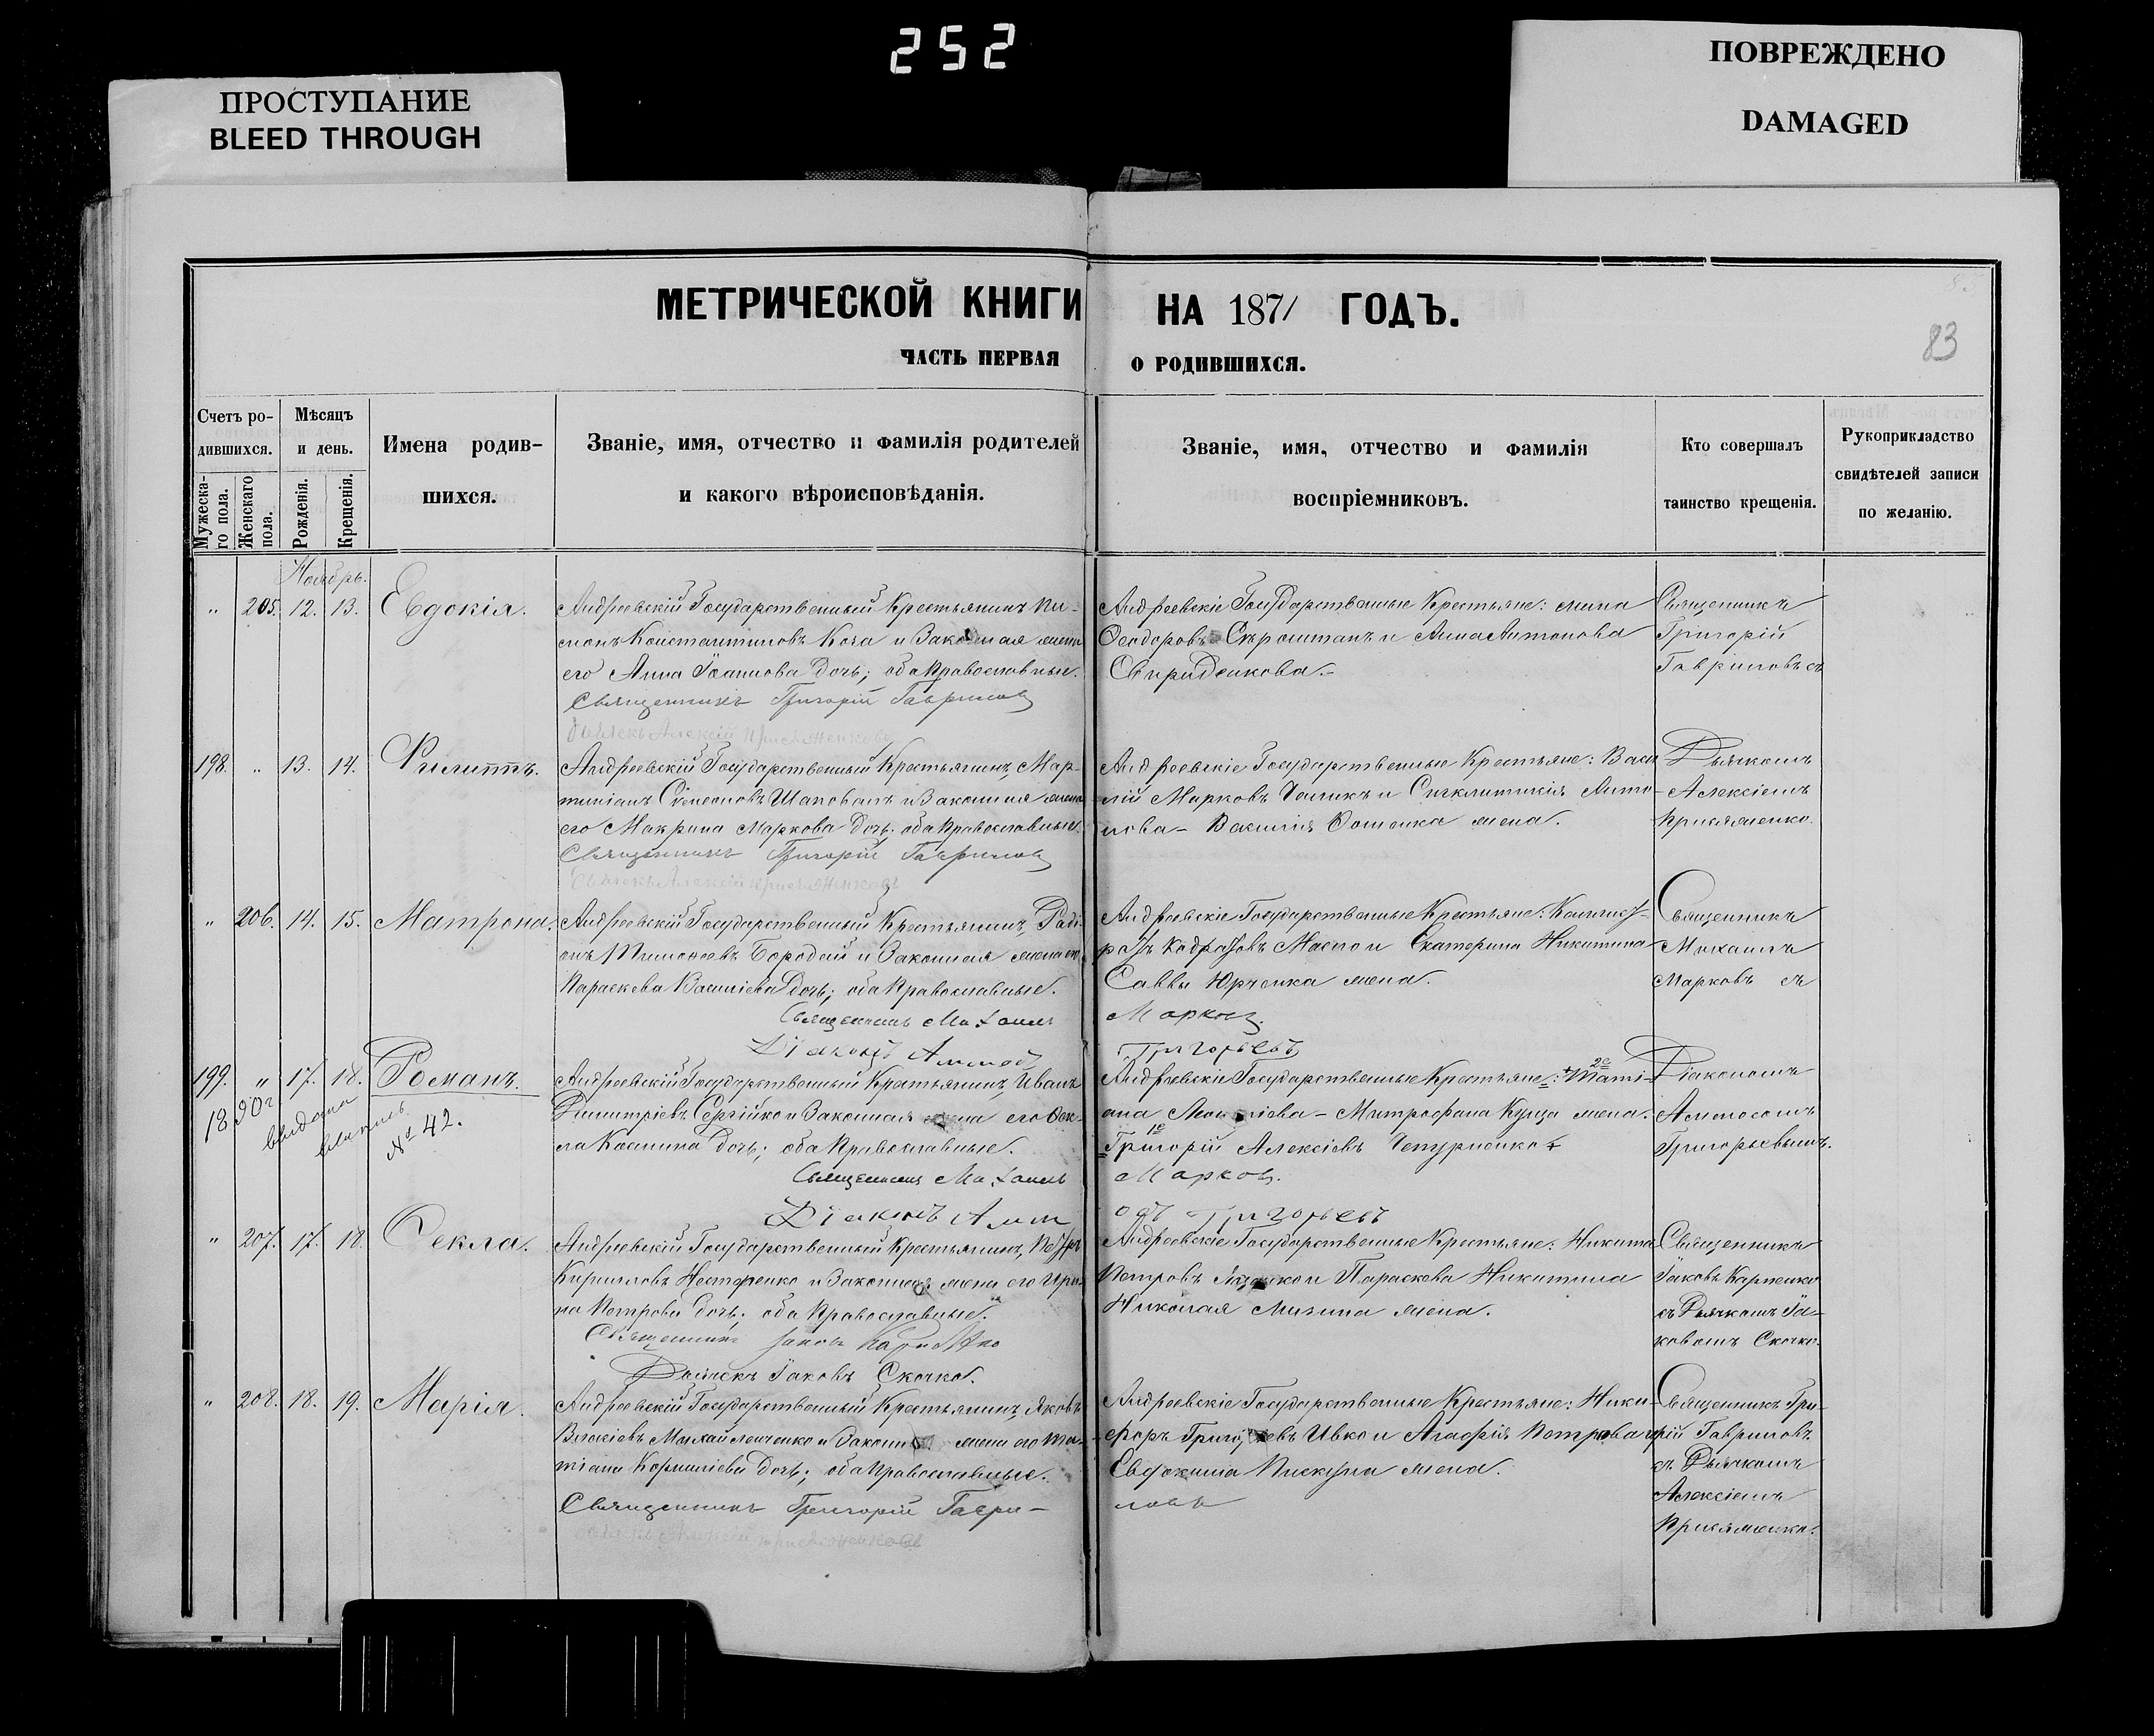 252
ПРОСТУПАНИЕ
BLEED THROUGH
ПОВРЕЖДЕНО
DAMAGED
МЕТРИЧЕСКОЙ КНИГИ НА 1871 ГОДЪ.
83
ЧАСТЬ ПЕРВАЯ О РОДИВШИХСЯ.
Счетъ ро-
дившихся.
Мужеска-
го пола.
Женскаго
пола.
Мѣсяцъ
и день.
Рожденія.
Крещенія.
Имена родив-
шихся.
Званіе, имя, отчество и фамилія родителей
и какого вѣроисповѣданія.
Званіе, имя, отчество и фамилія
воспріемниковъ.
Кто совершалъ
таинство крещенія.
Рукоприкладство
свидѣтелей записи
по желанію.
Ноябрь.
" 205. 12. 13. Евдокія.
Андреевскій Государственный Крестьянинъ Пи-
менъ Константиновъ Коча и Законная жена
его Анна Іоаннова дочь; оба Православные.
Священникъ Григорій Гавриловъ
Андреевскіе Государственные Крестьяне:
Феодоровъ и Анна Антонова
Свириденкова.
Священникъ
Григорій
Гавриловъ съ
198. " 13. 14. Филиппъ.
Андреевскій Государственный Крестьянинъ, Мар-
тиніанъ Симеоновъ Шаповалъ и Законная жена
его Макрина Маркова дочь; оба Православные.
Священникъ Григорій Гавриловъ
Андреевскіе Государственные Крестьяне: Васи-
лій Марковъ и Синклитикія Анто-
нова - Василія жена.
Дьячкомъ
Алексіемъ
" 206. 14. 15. Матрона.
Андреевскій Государственный Крестьянинъ, Роді-
онъ Тимофеевъ Бородай и Законная жена его
Параскева Василіева дочь; оба Православные.
Священникъ Михаилъ Марковъ.
Діаконъ Аммосъ Григорьевъ
Андреевскіе Государственные Крестьяне:
и Екатерина Никитина
Саввы Юрченка жена.
Священникъ
Михаилъ
Марковъ съ
199. " 17. 18. Романъ.
выдана
№ 42.
Андреевскій Государственный Крестьянинъ, Иванъ
Димитріевъ Сергійко и Законная жена его Фек-
ла Космина дочь; оба Православные.
Священникъ Михаилъ Марковъ.
Діаконъ Аммосъ Григорьевъ
Андреевскіе Государственные Крестьяне: 2е Таті-
ана - Митрофана Куща жена.
1е Григорій Алексіевъ Чепурненко
Діакономъ
Аммосомъ
Григорьевымъ.
" 207. 17. 18. Фекла.
Андреевскій Государственный Крестьянинъ, Петръ
Кирилловъ Нестеренко и Законная жена его Ири-
на Петрова дочь; оба Православные.
Священникъ Іаковъ Карпенко
Дьячекъ Іаковъ Скочко.
Андреевскіе Государственные Крестьяне: Никита
Петровъ и Параскева Никитина
Николая Мизина жена.
Священникъ
Іаковъ Карпенко
съ Дьячкомъ Іа-
ковомъ Скочко.
" 208. 18. 19. Марія.
Андреевскій Государственный Крестьянинъ, Яковъ
Власіевъ Михайличенко и Законная жена его Та-
тіана Корниліева дочь; оба Православные.
Священникъ Григорій Гаври-
ловъ
Андреевскіе Государственные Крестьяне: Ники-
форъ Ивко и Агафія Петрова
Евдокима Пискуна жена.
Священникъ Гри-
горій Гавриловъ
съ Дьячкомъ
Алексіемъ